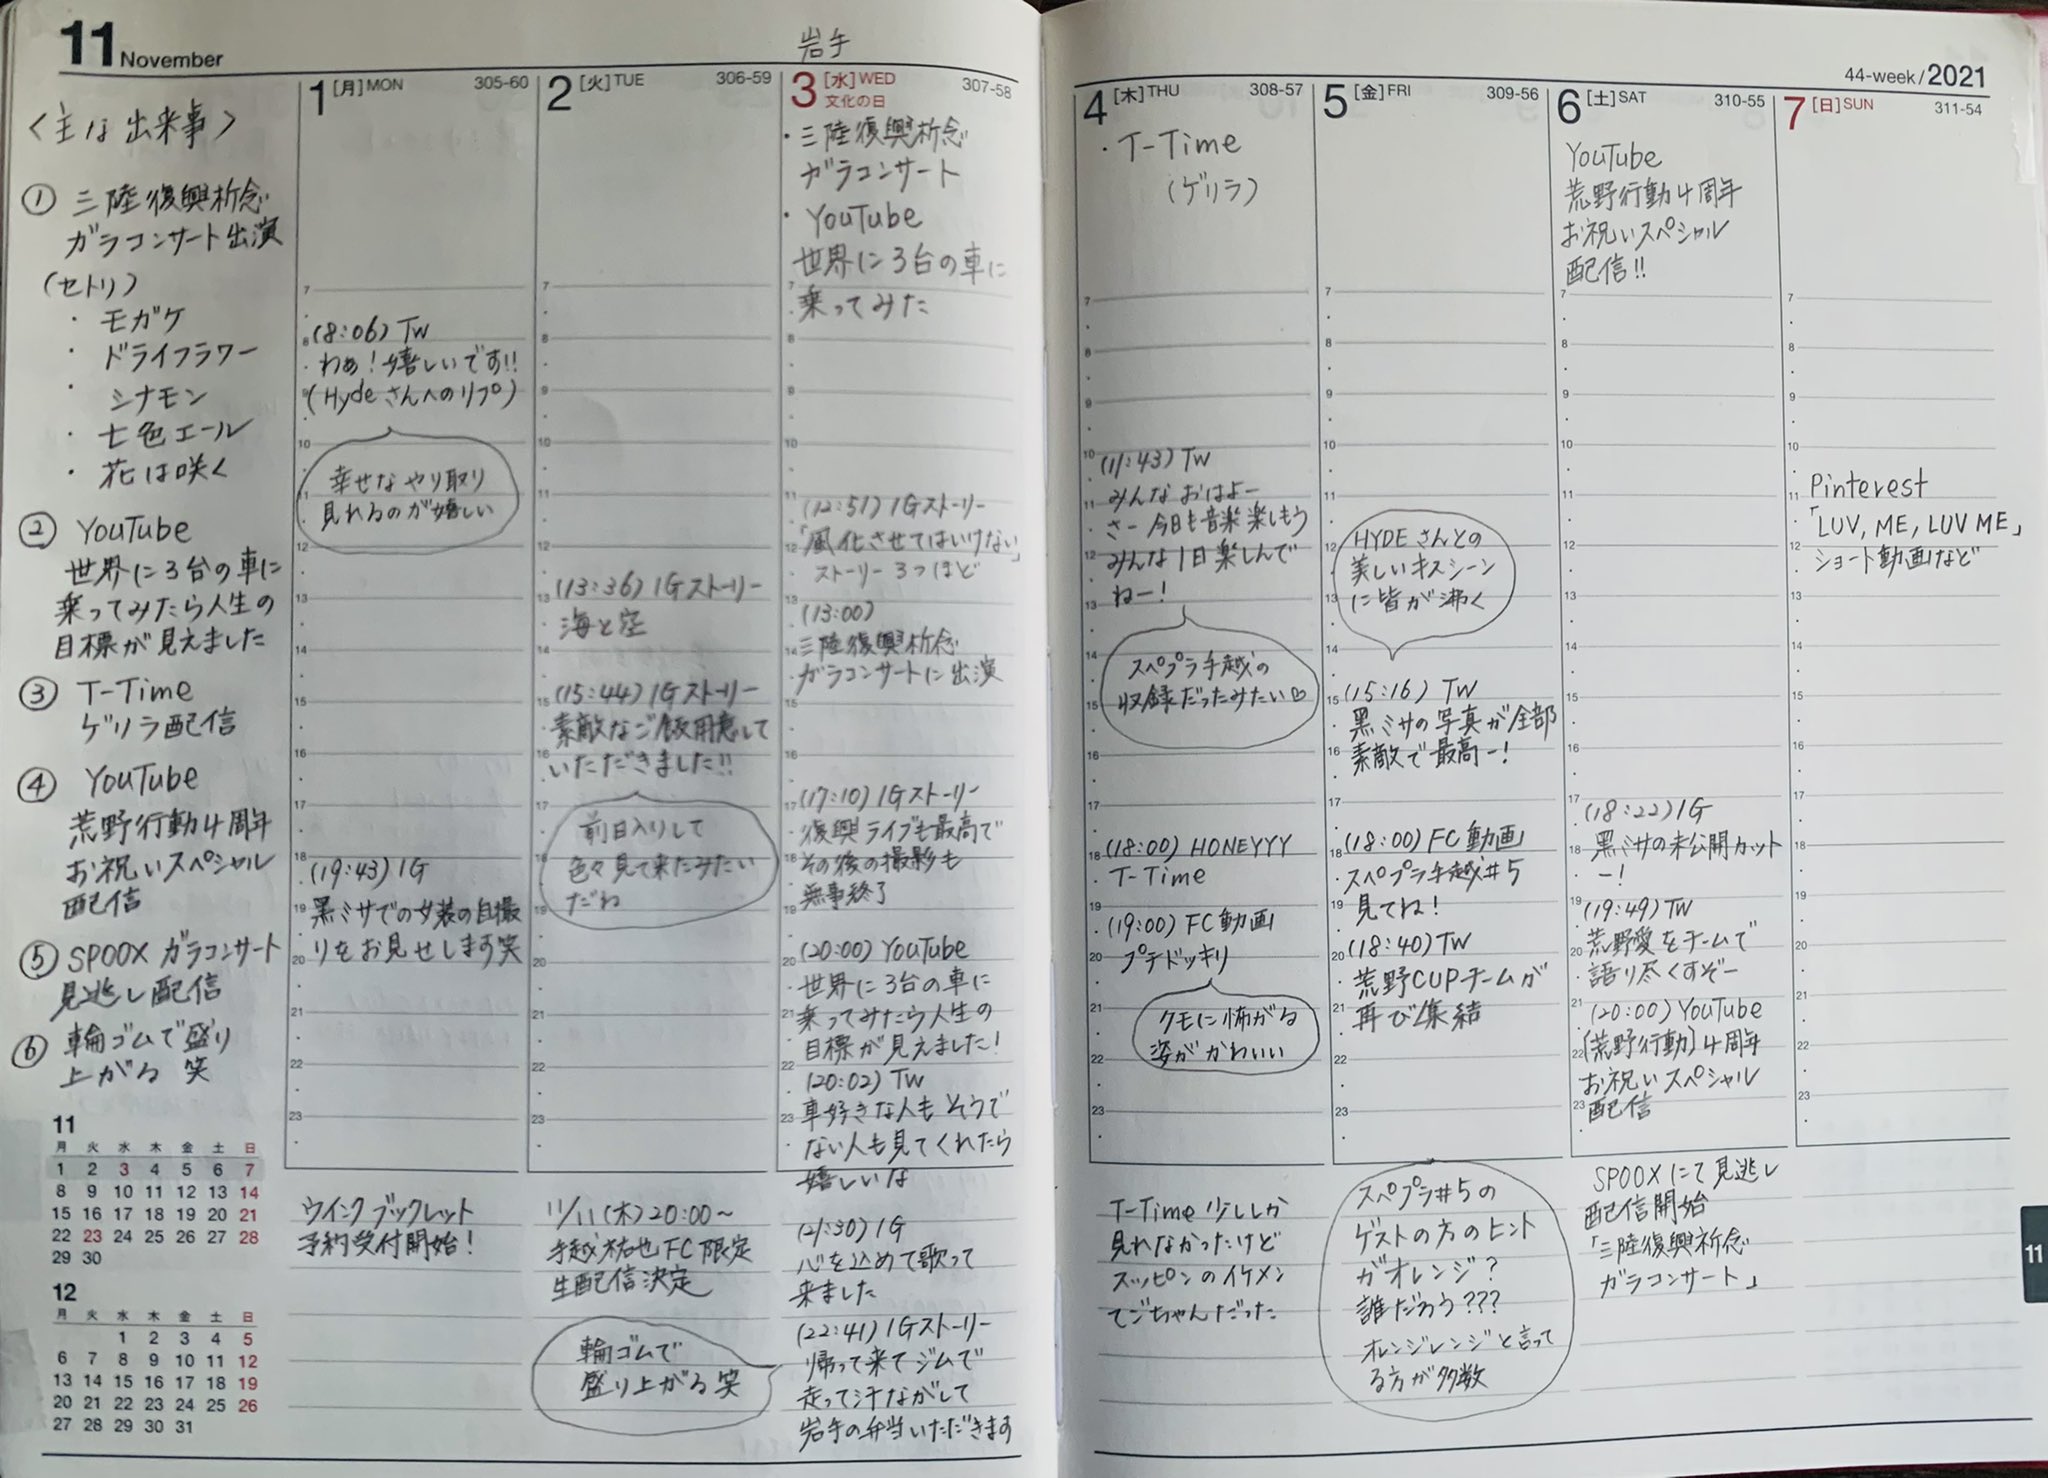 11 November
岩手
44-week/2021
<主な出来事>
① 三陸復興祈念
ガラコンサート出演
(セトリ)
・モガケ
・ドライフラワー
・シナモン
・七色エール
・花は咲く
② YouTube
世界に3台の車に
乗ってみたら人生の
目標が見えました
③ T-Time
ゲリラ配信
④ YouTube
荒野行動4周年
お祝いスペシャル
配信
⑤ SPOOX ガラコンサート
見逃し配信
⑥ 輪ゴムで盛り
上がる 笑
11
月 火 水 木 金 土 日
1 2 3 4 5 6 7
8 9 10 11 12 13 14
15 16 17 18 19 20 21
22 23 24 25 26 27 28
29 30
12
月 火 水 木 金 土 日
1 2 3 4 5
6 7 8 9 10 11 12
13 14 15 16 17 18 19
20 21 22 23 24 25 26
27 28 29 30 31
1 [月] MON 305-60
7
8
9
10
11
12
13
14
15
16
17
18
19
20
21
22
23
(8:06) TW
わぁ!嬉しいです!!
(Hydeさんへのリプ)
幸せなやり取り
見れるのが嬉しい
(19:43) IG
黒ミサでの女装の自撮
りをお見せします笑
ウインクブックレット
予約受付開始!
2 [火] TUE 306-59
7
8
9
10
11
12
13
14
15
16
17
18
19
20
21
22
23
(13:36) IGストーリー
海と空
(15:44) IGストーリー
素敵なご飯用意して
いただきました!!
前日入りして
色々見て来たみたい
だね
11/11(木)20:00~
手越祐也FC限定
生配信決定
輪ゴムで
盛り上がる 笑
3 [水] WED 307-58
文化の日
・三陸復興祈念
ガラコンサート
・YouTube
世界に3台の車に
乗ってみた
7
8
9
10
11
12
13
14
15
16
17
18
19
20
21
22
23
(12:51) IGストーリー
「風化させてはいけない」
ストーリー 3つほど
(13:00)
三陸復興祈念
ガラコンサートに出演
(17:10) IGストーリー
復興ライブも最高で
その後の撮影も
無事終了
(20:00) YouTube
世界に3台の車に
乗ってみたら人生の
目標が見えました!
(20:02) TW
車好きな人もそうで
ない人も見てくれたら
嬉しいな
(21:30) IG
心を込めて歌って
来ました
(22:41) IGストーリー
帰って来てジムで
走って汗ながして
岩手の弁当いただきます
4 [木] THU 308-57
・T-Time
(ゲリラ)
7
8
9
10
11
12
13
14
15
16
17
18
19
20
21
22
23
(11:43) TW
みんなおはよー
さー今日も音楽楽しもう
みんな1日楽しんで
ねー!
スペプラ手越の
収録だったみたい♡
(18:00) HONEYYY
T-Time
(19:00) FC動画
プチドッキリ
クモに怖がる
姿がかわいい
T-Time少ししか
見れなかったけど
スッピンのイケメン
てごちゃんだった
5 [金] FRI 309-56
7
8
9
10
11
12
13
14
15
16
17
18
19
20
21
22
23
HYDEさんとの
美しいキスシーン
に皆が沸く
(15:16) TW
黒ミサの写真が全部
素敵で最高ー!
(18:00) FC動画
スペプラ手越#5
見てね!
(18:40) TW
荒野CUPチームが
再び集結
スペプラ#5の
ゲストの方のヒント
がオレンジ?
誰だろう???
オレンジレンジと言って
る方が多数
6 [土] SAT 310-55
YouTube
荒野行動4周年
お祝いスペシャル
配信!!
7
8
9
10
11
12
13
14
15
16
17
18
19
20
21
22
23
(18:22) IG
黒ミサの未公開カット
ー!
(19:49) TW
荒野愛をチームで
語り尽くすぞー
(20:00) YouTube
[荒野行動]4周年
お祝いスペシャル
配信
SPOOXにて見逃し
配信開始
「三陸復興祈念
ガラコンサート」
7 [日] SUN 311-54
7
8
9
10
11
12
13
14
15
16
17
18
19
20
21
22
23
Pinterest
「LUV, ME, LUV ME」
ショート動画など
11